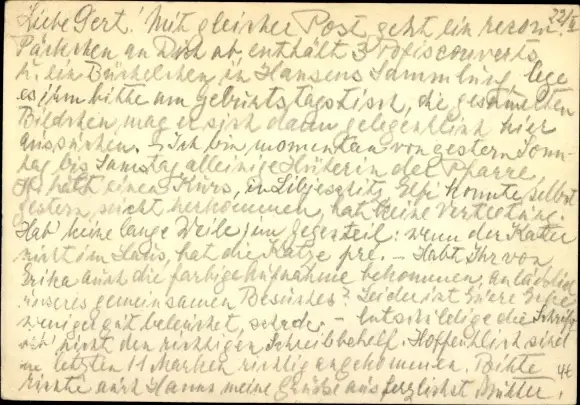 22/V
Liebe Gert! Mit gleicher Post geht ein recom.
Päckchen an Dich ab enthält 3 couverts
u. ein Büchelchen in Hansens Sammlung, lege
es ihm bitte am Geburtstagstisch, die gesamten
Bildchen mag er sich dann gelegentlich hier
aussuchen. – Ich bin momentan von gestern Sonn-
tag bis Samstag alleinige Hüterin der Pfarre,
hält einen Kurs, in konnte selbst
gestern nicht herkommen, hat keine Vertretung.
Hab' keine lange Weile, im Gegenteil: wenn der Kater
nicht im Haus, hat die Katze pre. – Habt Ihr von
Erika auch die farbige Aufnahme bekommen, anläßlich
unseres gemeinsamen Besuches? Leider ist Euere
weniger gut beleuchtet, schade. – Entschuldige die Schrift,
hab' nicht den richtigen Schreibbehelf. Hoffentlich sind
die letzten 11 Marken richtig angekommen. Bitte
richte auch Hanns meine Grüße aus herzlichst Mutter.